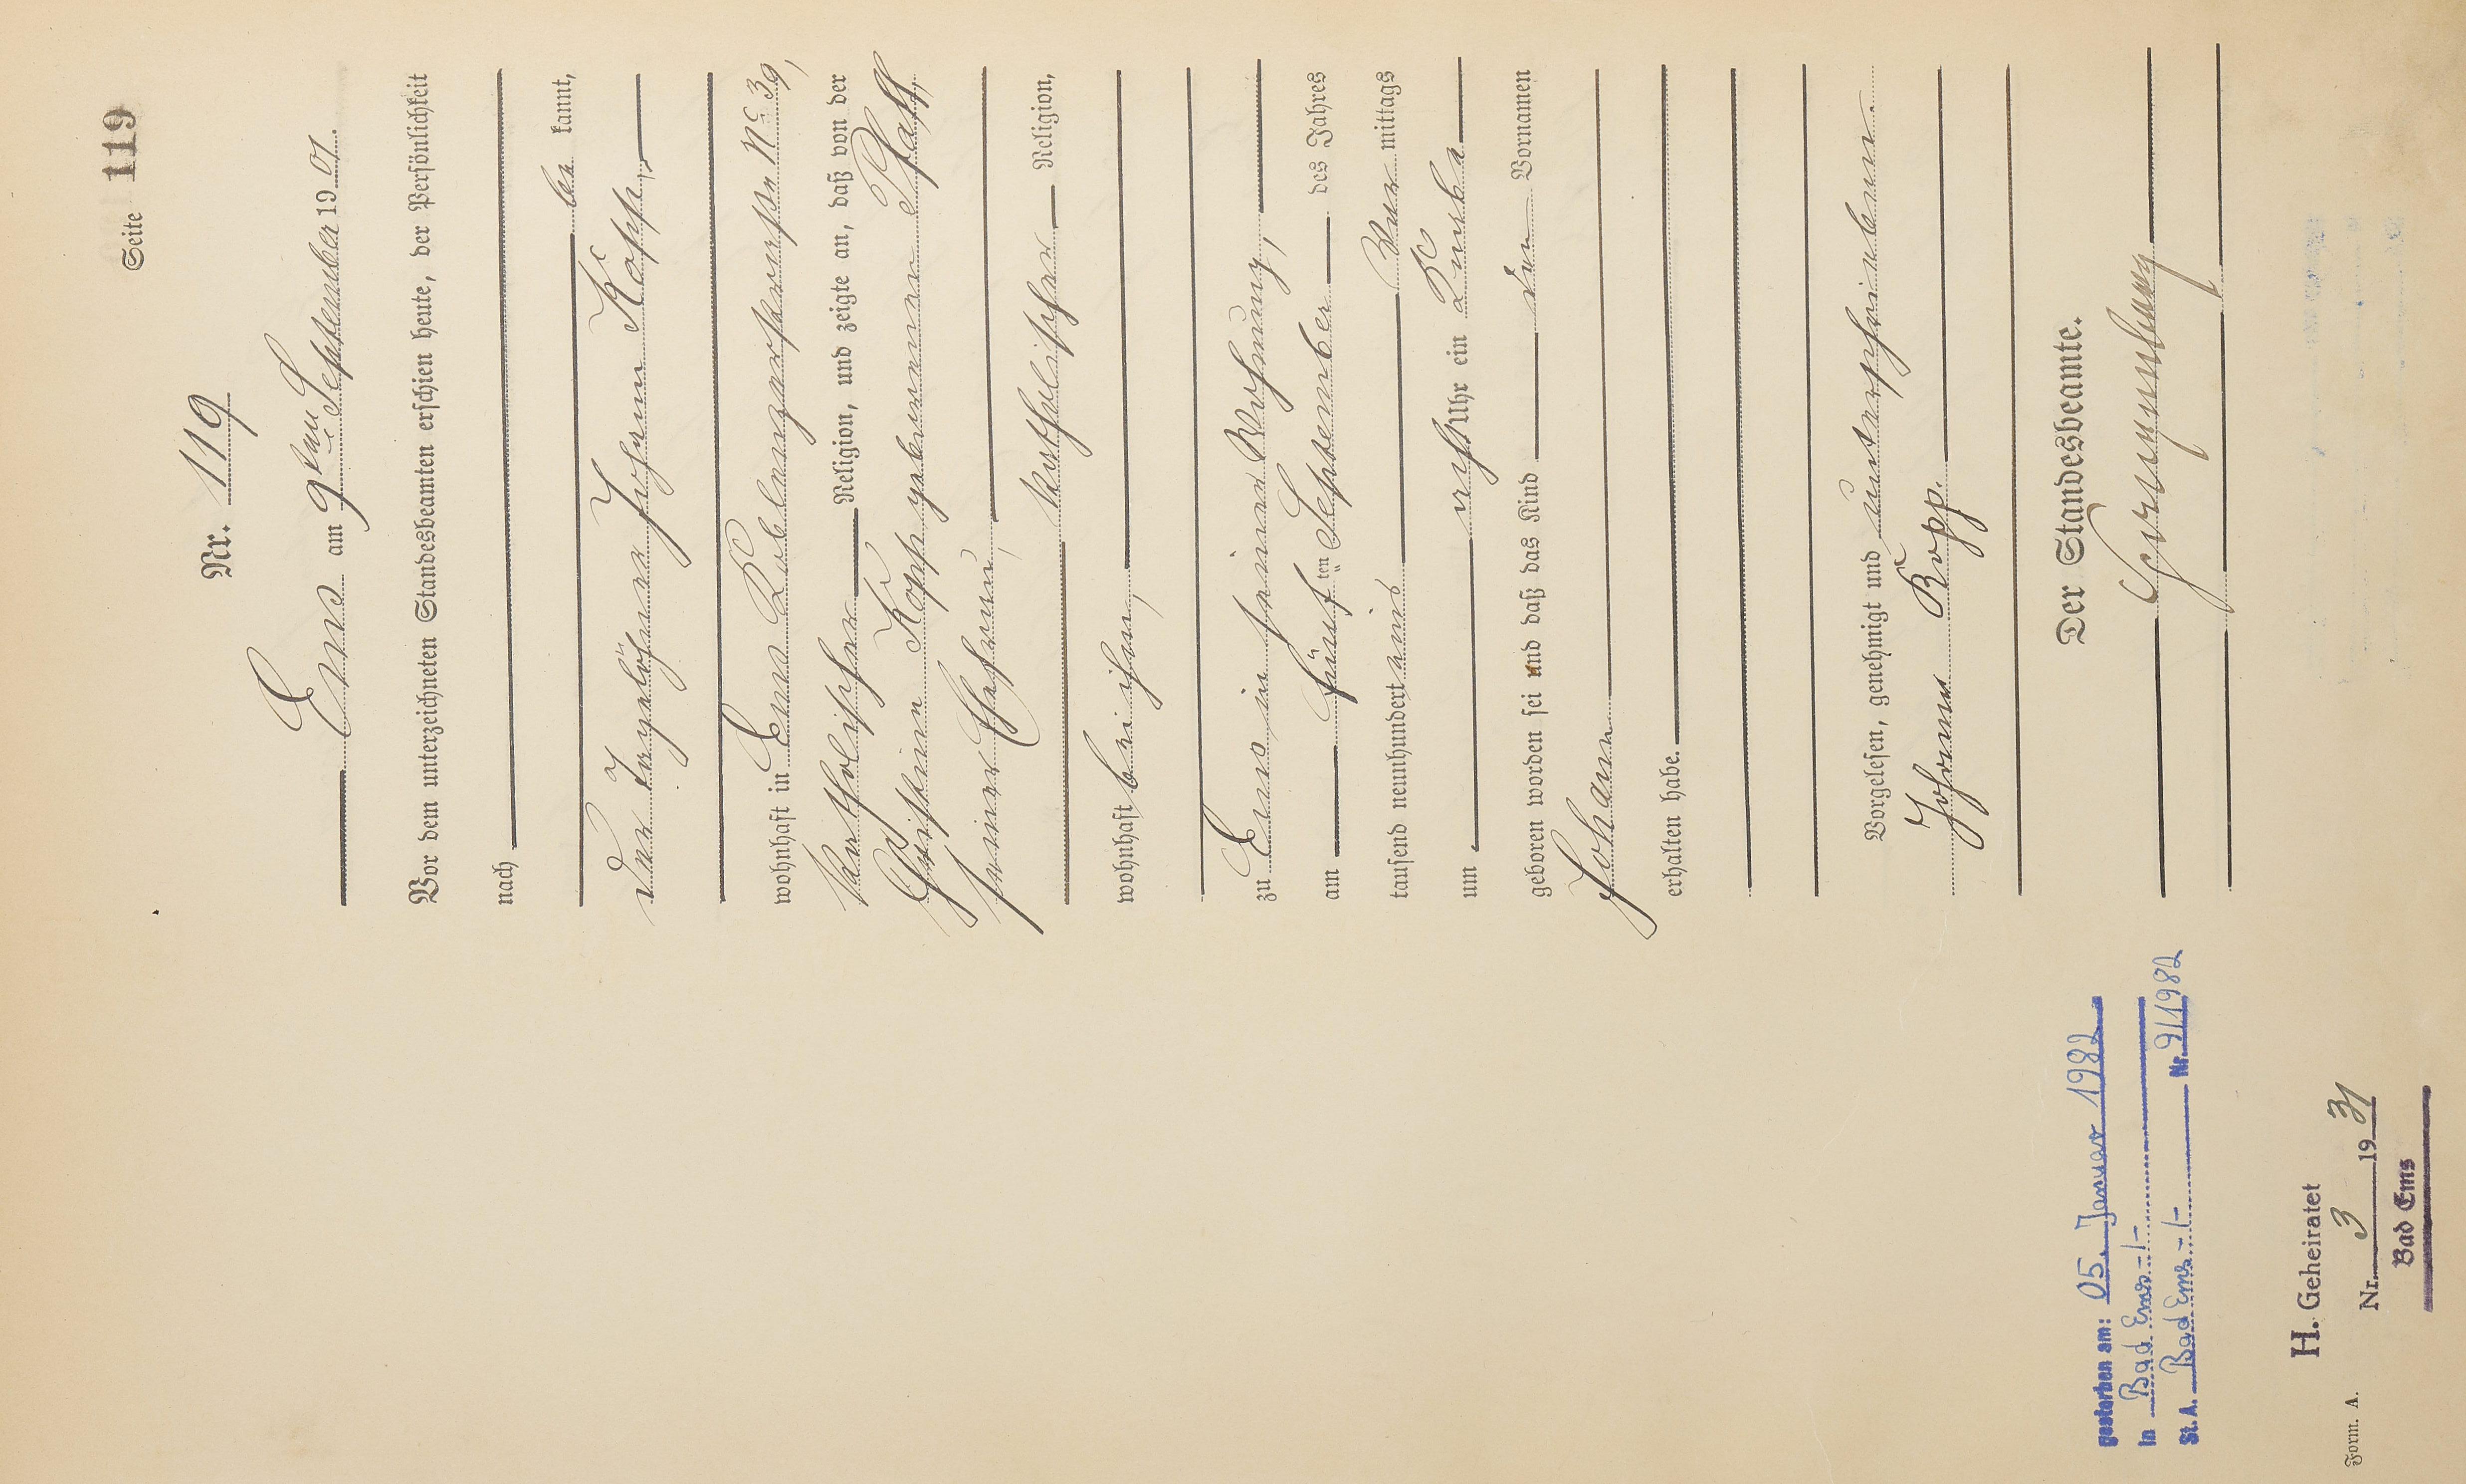 Seite 119
Nr. 119
Ems am 9ten September 1901.
Vor dem unterzeichneten Standesbeamten erschien heute, der Persönlichkeit
nach
be kannt,
der Tagelöhner Johann Kopp,
wohnhaft in Ems Coblenzerstrasse No 39,
katholischer Religion, und zeigte an, daß von der
Christine Kopp geborenen Pfaff,
seiner Ehefrau,
katholischer Religion,
wohnhaft bei ihm,
zu Ems in seiner Wohnung,
am fünften September des Jahres
tausend neunhundert eins Vor mittags
um acht Uhr ein Knabe
geboren worden sei und daß das Kind den Vornamen
Johann
erhalten habe.
Vorgelesen, genehmigt und unterschrieben.
Johann Kopp.
Der Standesbeamte.
gestorben am: 05. Januar 1982
in Bad Ems -/-
St. A. Bad Ems -/- Nr. 9/1982
H. Geheiratet
Nr. 3 1931
Bad Ems
Form. A.